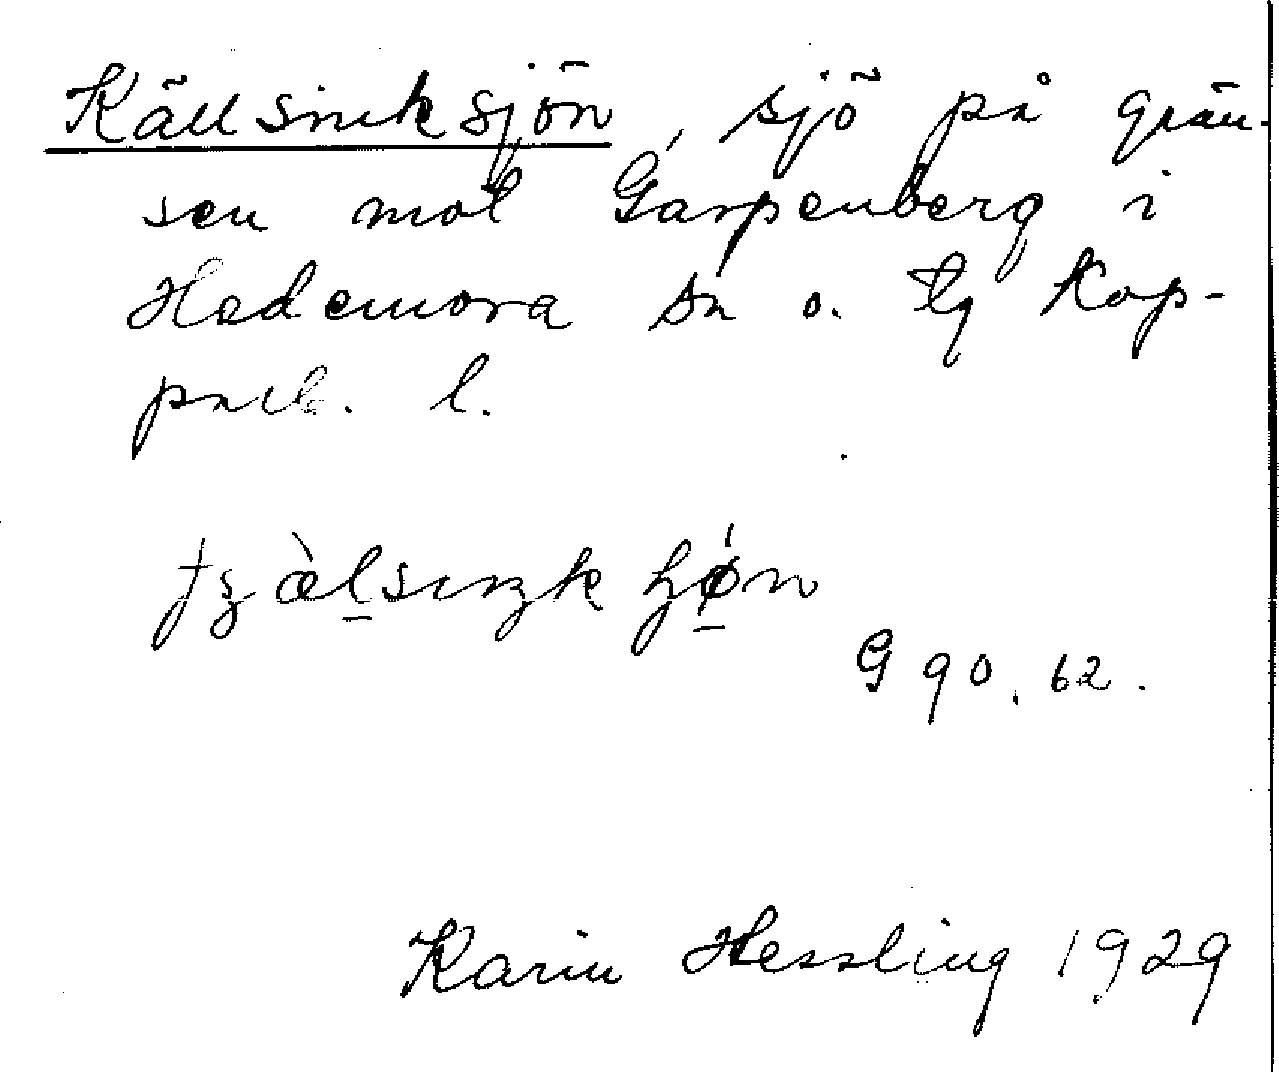 Källsinksjön, sjö på grän-
sen mot Garpenberg i
Hedemora sn o. tg Kop-
parb. l.
G 90. 62.
Karin Hessling 1929